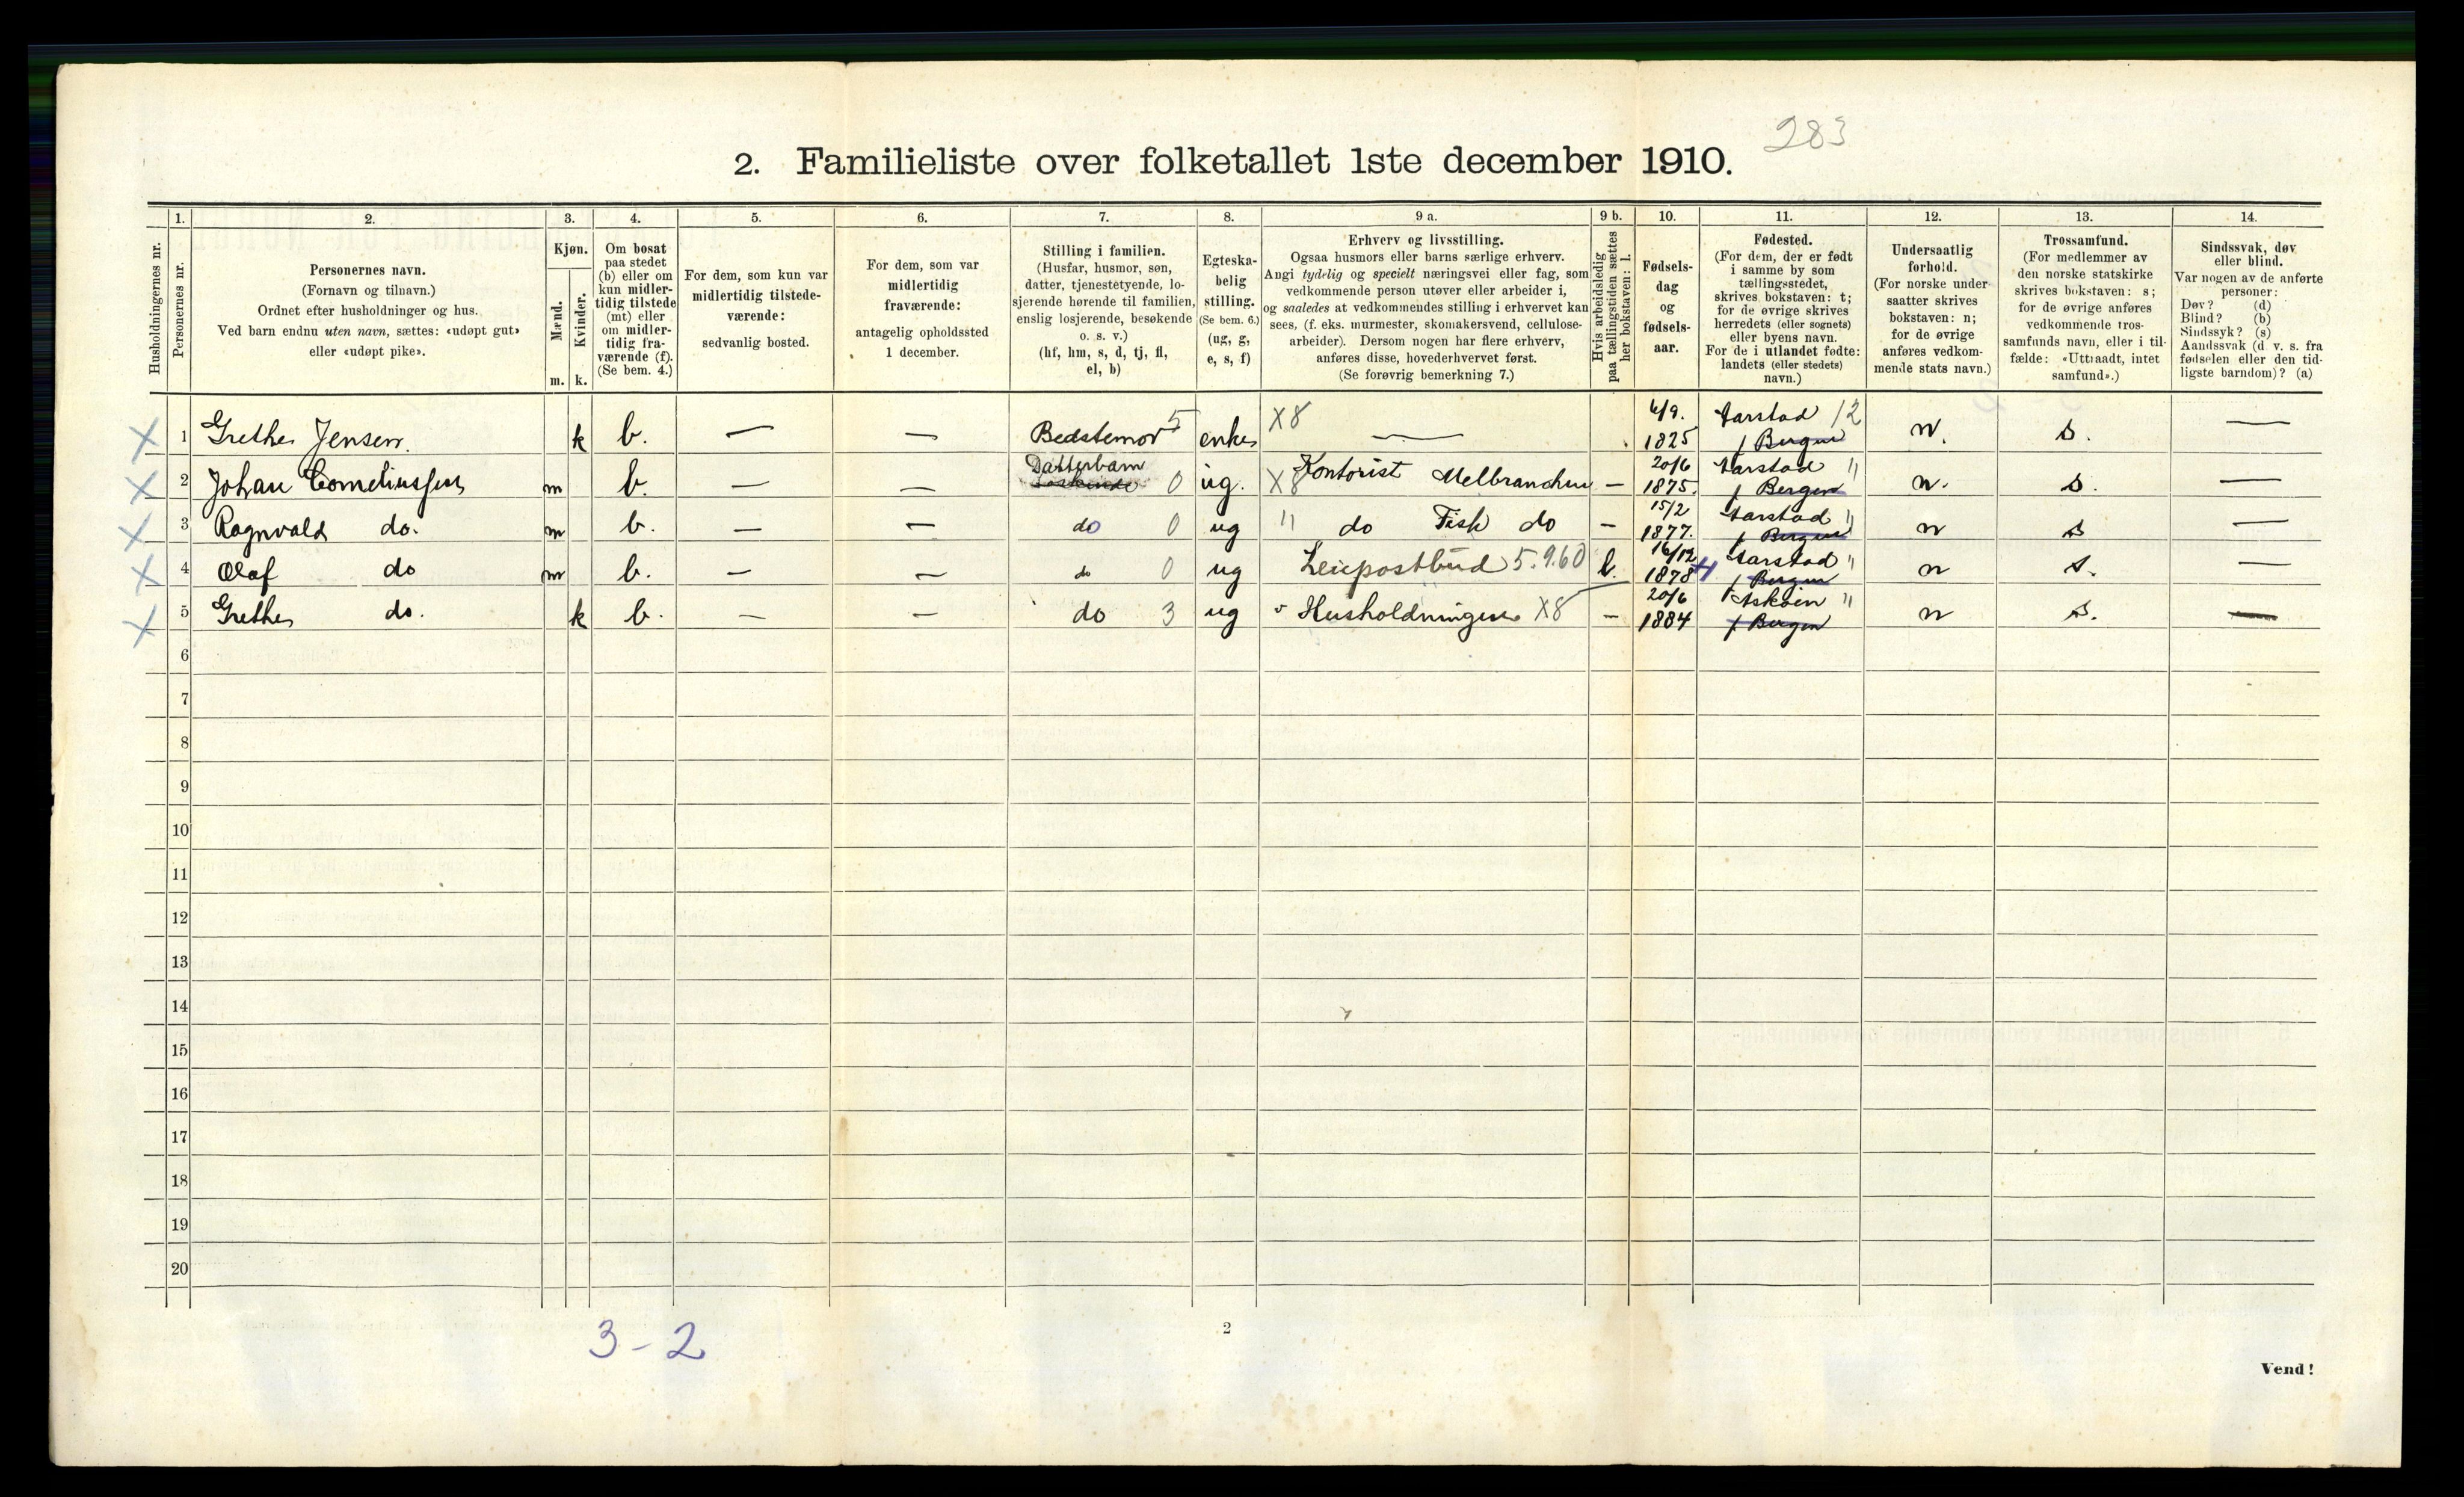 283
2. Familieliste over folketallet 1ste december 1910.
Husholdningernes nr.
1.
Personernes nr.
2.
Personernes navn.
(Fornavn og tilnavn.)
Ordnet efter husholdninger og hus.
Ved barn endnu uten navn, sættes: «udøpt gut»
eller «udøpt pike».
3.
Kjøn.
Mænd.
Kvinder.
m. k.
4.
Om bosat
paa stedet
(b) eller om
kun midler-
tidig tilstede
(mt) eller
om midler-
tidig fra-
værende (f).
(Se bem. 4.)
5.
For dem, som kun var
midlertidig tilstede-
værende:
sedvanlig bosted.
6.
For dem, som var
midlertidig
fraværende:
antagelig opholdssted
1 december.
7.
Stilling i familien.
(Husfar, husmor, søn,
datter, tjenestetyende, lo-
sjerende hørende til familien,
enslig losjerende, besøkende
o. s. v.)
(hf, hm, s, d, tj, fl,
el, b)
8.
Egteska-
belig
stilling.
(Se bem. 6.)
(ug, g,
e, s, f)
9 a.
Erhverv og livsstilling.
Ogsaa husmors eller barns særlige erhverv.
Angi tydelig og specielt næringsvei eller fag, som
vedkommende person utøver eller arbeider i,
og saaledes at vedkommendes stilling i erhvervet kan
sees, (f. eks. murmester, skomakersvend, cellulose-
arbeider). Dersom nogen har flere erhverv,
anføres disse, hovederhvervet først.
(Se forøvrig bemerkning 7.)
9 b.
Hvis arbeidsledig
paa tællingstiden sættes
her bokstaven: l.
10.
Fødsels-
dag
og
fødsels-
aar.
11.
Fødested.
(For dem, der er født
i samme by som
tællingsstedet,
skrives bokstaven: t;
for de øvrige skrives
herredets (eller sognets)
eller byens navn.
For de i utlandet fødte:
landets (eller stedets)
navn.)
12.
Undersaatlig
forhold.
(For norske under-
saatter skrives
bokstaven: n;
for de øvrige
anføres vedkom-
mende stats navn.)
13.
Trossamfund.
(For medlemmer av
den norske statskirke
skrives bokstaven: s;
for de øvrige anføres
vedkommende tros-
samfunds navn, eller i til-
fælde: «Uttraadt, intet
samfund».)
14.
Sindssvak, døv
eller blind.
Var nogen av de anførte
personer:
Døv? (d)
Blind? (b)
Sindssyk? (s)
Aandssvak (d. v. s. fra
fødselen eller den tid-
ligste barndom)? (a)
X 1 Grethe Jensen. k b. — — Bedstemor 5 enke X8 — 6/9. 1825 Aarstad 12 f Bergen n. s. —
X 2 Johan Corneliussen m b. — — Datterbarn 0 ug. X8 Kontorist Melbranchen — 20/6 1875. Aarstad " f Bergen n. s. —
X 3 Ragnvald do. m b. — — do 0 ug " do Fisk do — 15/2 1877. Aarstad " f Bergen n s —
X 4 Olaf do m b. — — do 0 ug Leiepostbud 5.9.60 l. 16/12 1878 Aarstad " f Bergen n s. —
X 5 Grethe do. k b. — — do 3 ug v Husholdningen X8 — 20/6 1884 Askøen " f Bergen n s. —
6
7
8
9
10
11
12
13
14
15
16
17
18
19
20
3 - 2
2
Vend!